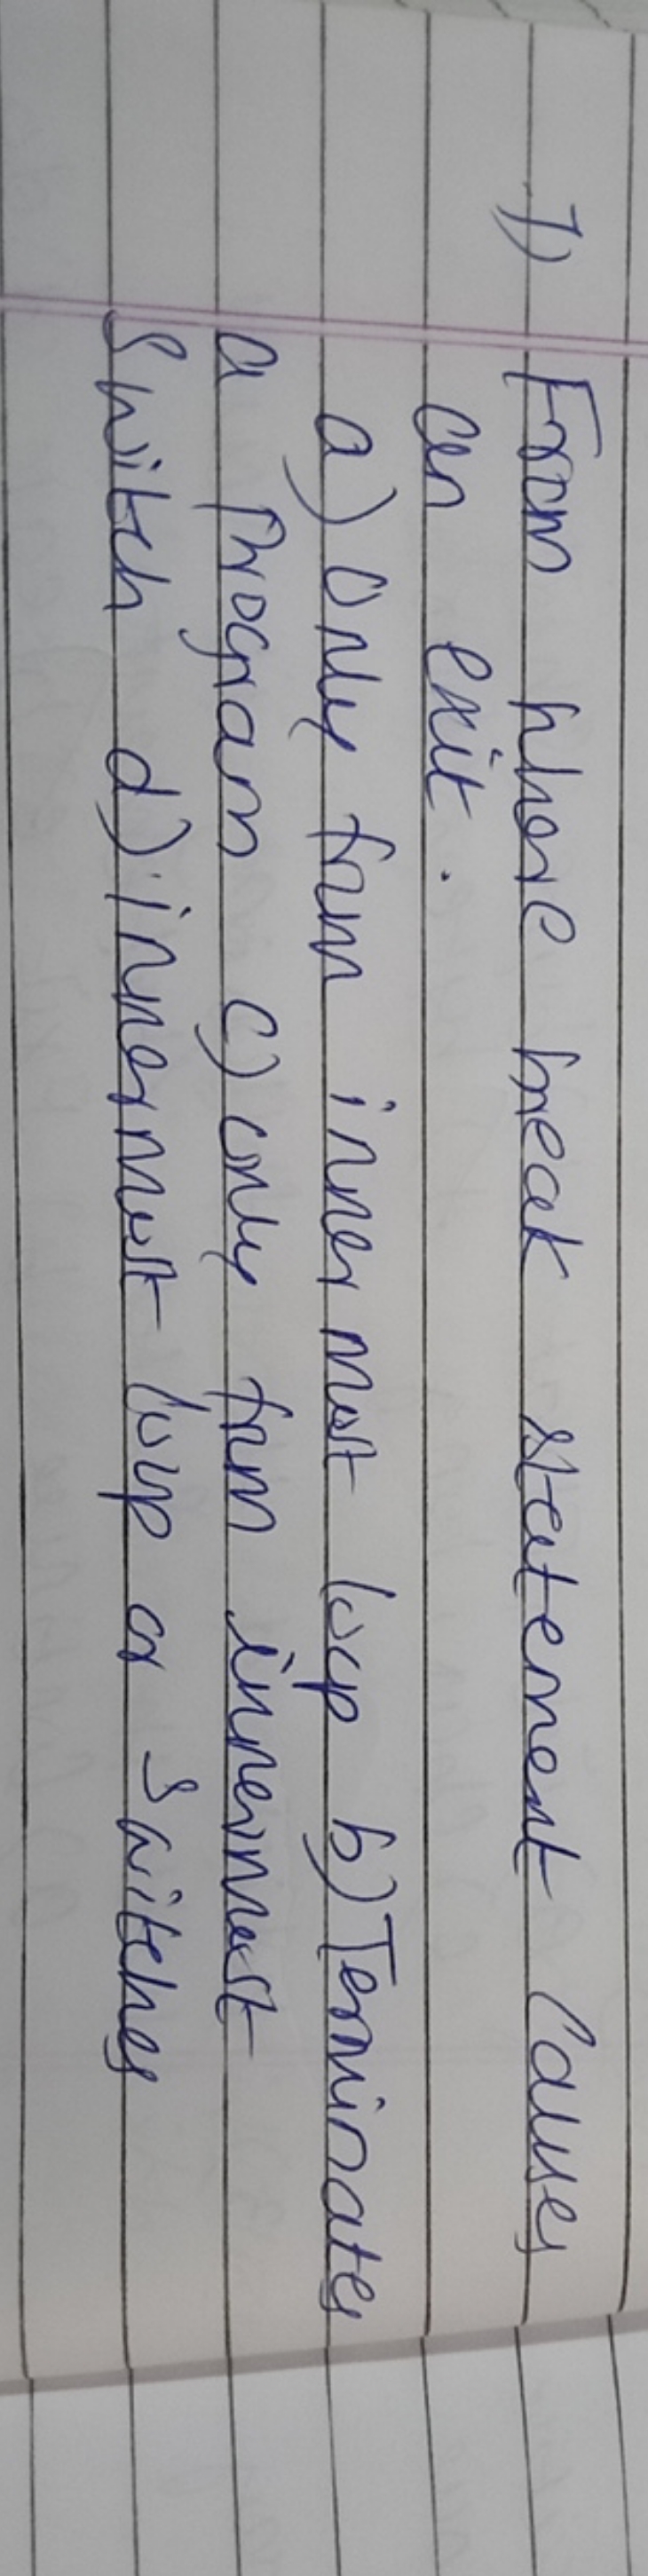 7) From where break statement causes
an exit.
a) Only from innermost loop b) Terminates
a program c) only from innermost
switch d) innermost loop or switches